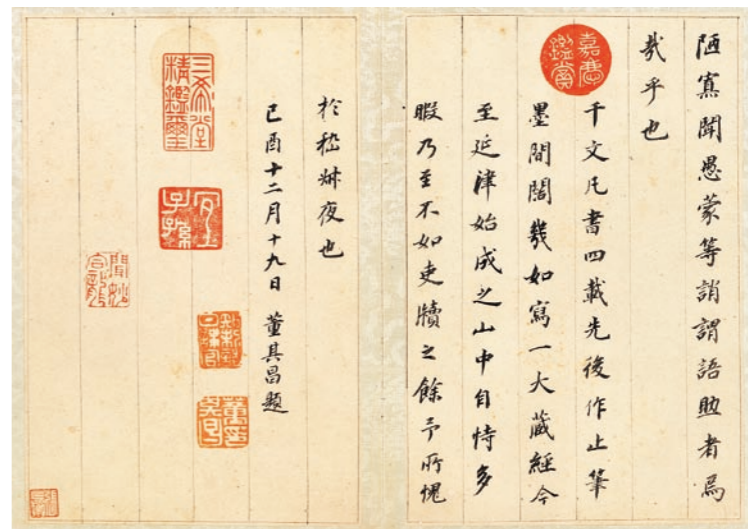 陋寡聞愚蒙等誚謂語助者焉
哉乎也
千文凡書四載先後作止筆
墨間闊幾如寫一大藏經今
至延津始成之山中自恃多
暇乃至不如吏牘之餘予所愧
於嵇牀夜也
己酉十二月十九日 董其昌題
嘉慶鑑賞
三希堂精鑑璽
宜子孫